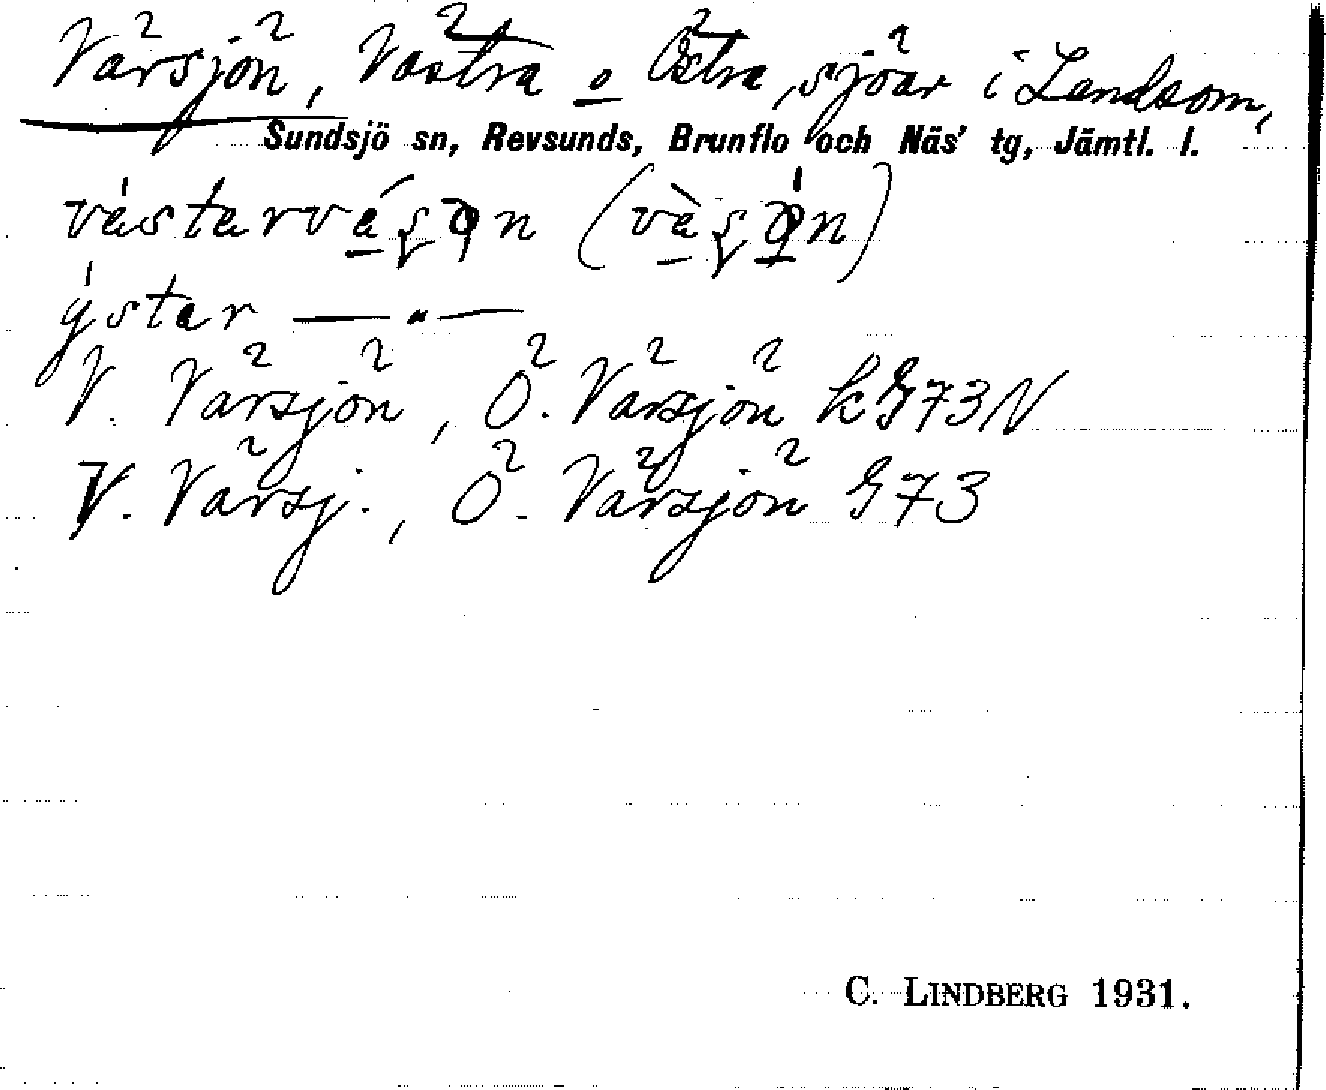 Värsjön, Västra o Östra, sjöar i Landsom,
Sundsjö sn, Revsunds, Brunflo och Näs' tg, Jämtl. l.
ýstar — " —
V. Värsjön, Ö. Värsjön k G73N
V. Värsj., Ö. Värsjön G73
C. LINDBERG 1931.